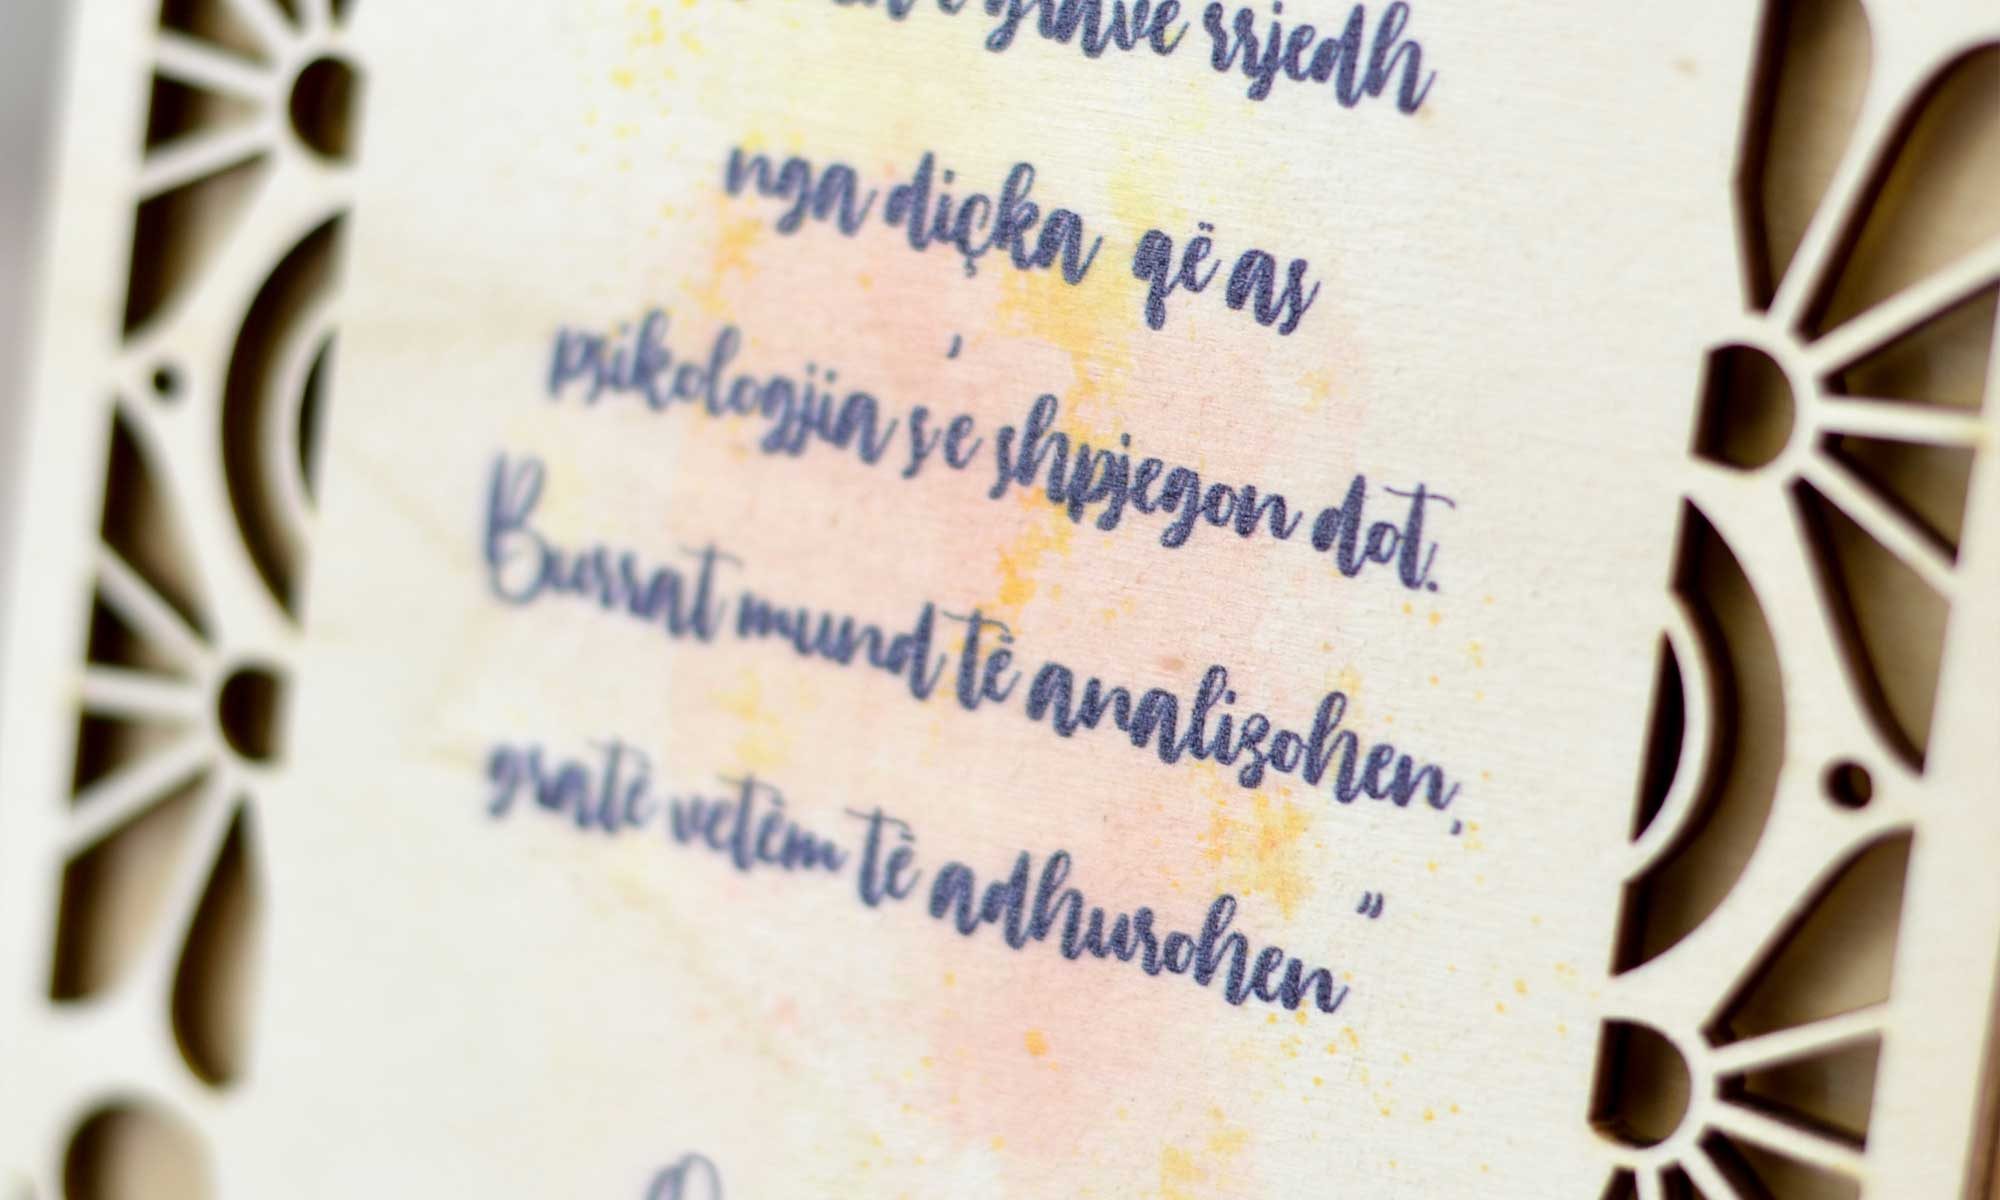 e grave rrjedh
nga diçka që as
psikologjia s'e shpjegon dot.
Burrat mund të analizohen,
gratë vetëm të adhurohen"